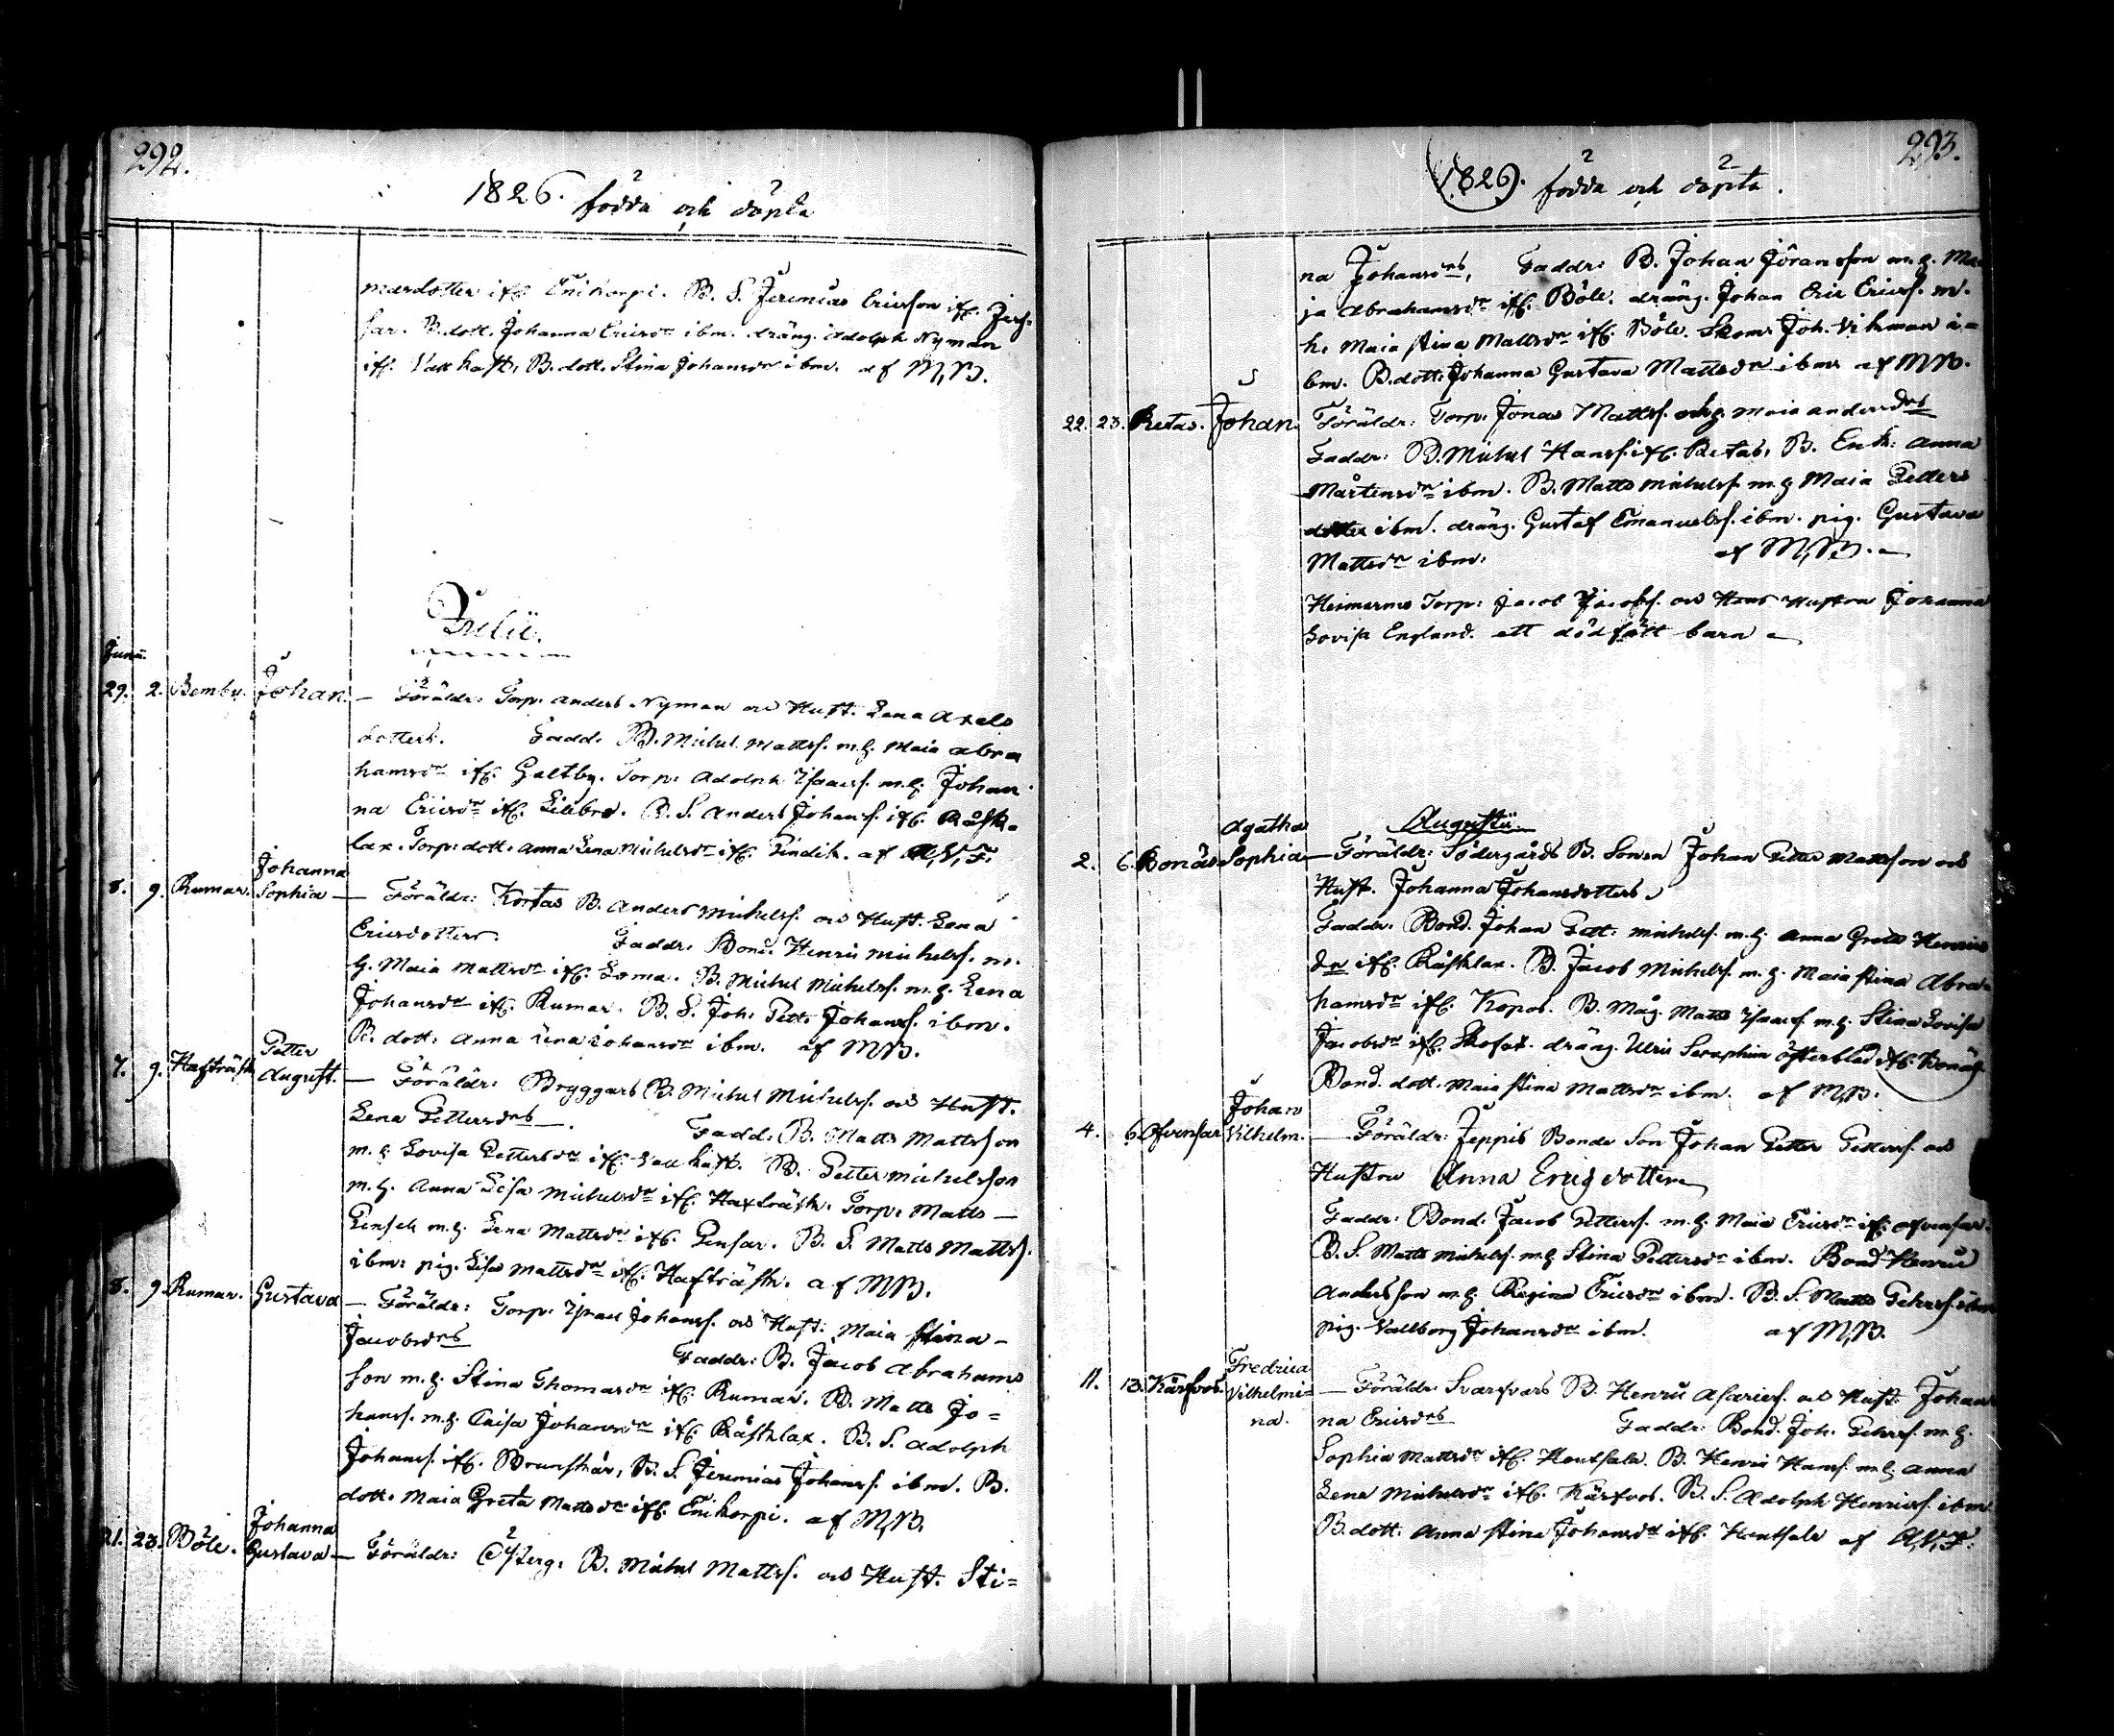 292.
1826. födda och döpta
masdotter ifr. Enikorpi. B. S. Jeremias Ericsson ifr.
B. dott. Johanna Ericsdr ibm. dräng. Adolph Nyman
ifr. B. dott. Stina Johansdr ibm. af M, B.
Julii.
Junii
29. 2. Bemby. Johan. — Föräldr: Torp. Anders Nyman och Hust. Lena Axels
dotters. Fadd. B. Michel Mattss. m. h. Maia Abra
hamsdr ifr. Galtby. Torp: Adolph Isaacs. m. h. Johan
na Ericsdr ifr. Lillbro. B. S. Anders Johanss. ifr. Råsk-
lax. Torp: dott. Anna Lena Michelsdr ifr. af A, V, F.
8. 9. Rumar. Johanna
Sophia — Föräldr: Kortas B. Anders Michelss. och Hust. Lena
Ericsdotters. Faddr. Bond. Henric Michelss. m.
h. Maia Mattsdr ifr. Loma. B. Michel Michelss. m. h. Lena
Johansdr ifr. Rumar. B. S. Joh. Pett. Johanss. ibm.
B. dott. Anna Lena Johansdr ibm. af M, B.
7. 9. Hafträsk Petter
August. — Föräldr: Bryggars B. Michel Michelss. och Hust.
Lena Pettersdrs. Fadd. B. Matts Mattsson
m. h. Lovisa Pettersdr ifr. B. Petter Michelsson
m. h. Anna Lisa Michelsdr ifr. Hafträsk. Torp. Matts —
m. h. Lena Mattsdr ifr. Pensar. B. S. Matts Mattss.
ibm: pig. Lisa Mattsdr ifr. Hafträsk. af M, B.
8. 9. Rumar. Gustava — Föräldr: Torp. Israel Johanss. och Hust: Maia Stina —
Jacobsdrs Faddr: B. Jacob Abrahams
son m. h. Stina Thomasdr ifr. Rumar. B. Matts Jo=
hanss. m. h. Caisa Johansdr ifr. Råsklax. B. S. Adolph
Johanss. ifr. Brunskär, B. S. Jeremias Johanss. ibm. B.
dott. Maia Greta Mattsdr ifr. Enikorpi. af M, B.
21. 23. Böle. Johanna
Gustava — Föräldr: B. Michel Mattss. och Hust. Sti=
293.
1826. födda och döpta.
na Johansdrs, Faddr: B. Johan Jöransson m. h. Ma
ja Abrahamsdr ifr. Böle. dräng. Johan Eric Ericss. m.
h. Maia Stina Mattsdr ifr. Böle. Skom. Joh. Vikman i=
bm. B. dott. Johanna Gustava Mattsdr ibm. af M, B.
22. 23. Retas. Johan. Föräldr: Torp. Jonas Mattss. och h. Maia Andersdrs
Faddr: B. Michel Hanss. ifr. Retas, B. Enk: Anna
Mårtensdr ibm. B. Matts Michelss. m. h. Maia Petters
dotter ibm. dräng. Gustaf Emanuelss. ibm. pig. Gustava
Mattsdr ibm: af M, B.
Torp: Jacob Jacobss. och Hustru Johanna
Lovisa Englund. ett dödfött barn
Augustii
2. 6. Bonäs Agatha
Sophia — Föräldr: Södergårds B. Sonen Johan Petter Mattsson och
Hust. Johanna Johansdotters
Faddr. Bond. Johan Pett. Michelss. m. h. Anna Greta Henrics
dr ifr. Råsklax. B. Jacob Michelss. m. h. Maia Stina Abra=
hamsdr ifr. Kopos. B. Måg. Matts Isaacs. m. h. Stina Lovisa
Jacobsdr ifr. dräng. Ulric Seraphim Österblad ifr. Bonäs.
Bond. dott. Maia Stina Mattsdr ibm. af M, B.
4. 6. Ofvensar Johan
Vilhelm. — Föräldr: Jeppis Bonde Son Johan Petter Petterss. och
Hustru Anna Ericsdotters
Faddr: Bond. Jacob Petterss. m. h. Maia Ericsdr ifr. Ofvensar.
B. S. Matts Michelss. m. h. Stina Pettersdr ibm. Bond Henric
Andersson m. h. Regina Ericsdr ibm. B. S. Matts Petterss. ibm
pig. Vallborg Johansdr ibm. af M, B.
11. 13. Kärfvos. Fredrica
Vilhelmi=
na. — Föräldr: Svarfvars B. Henric Asariess. och Hust. Johan
na Ericsdrs Faddr: Bond. Joh. Petterss. m. h.
Sophia Mattsdr ifr. Houtsala. B. Henric Hanss. m. h. Anna
Lena Michelsdr ifr. Kärfvos. B. S. Adolph Henricss. ibm
B. dott. Anna Stina Johansdr ifr. Houtsala af A, V, F.